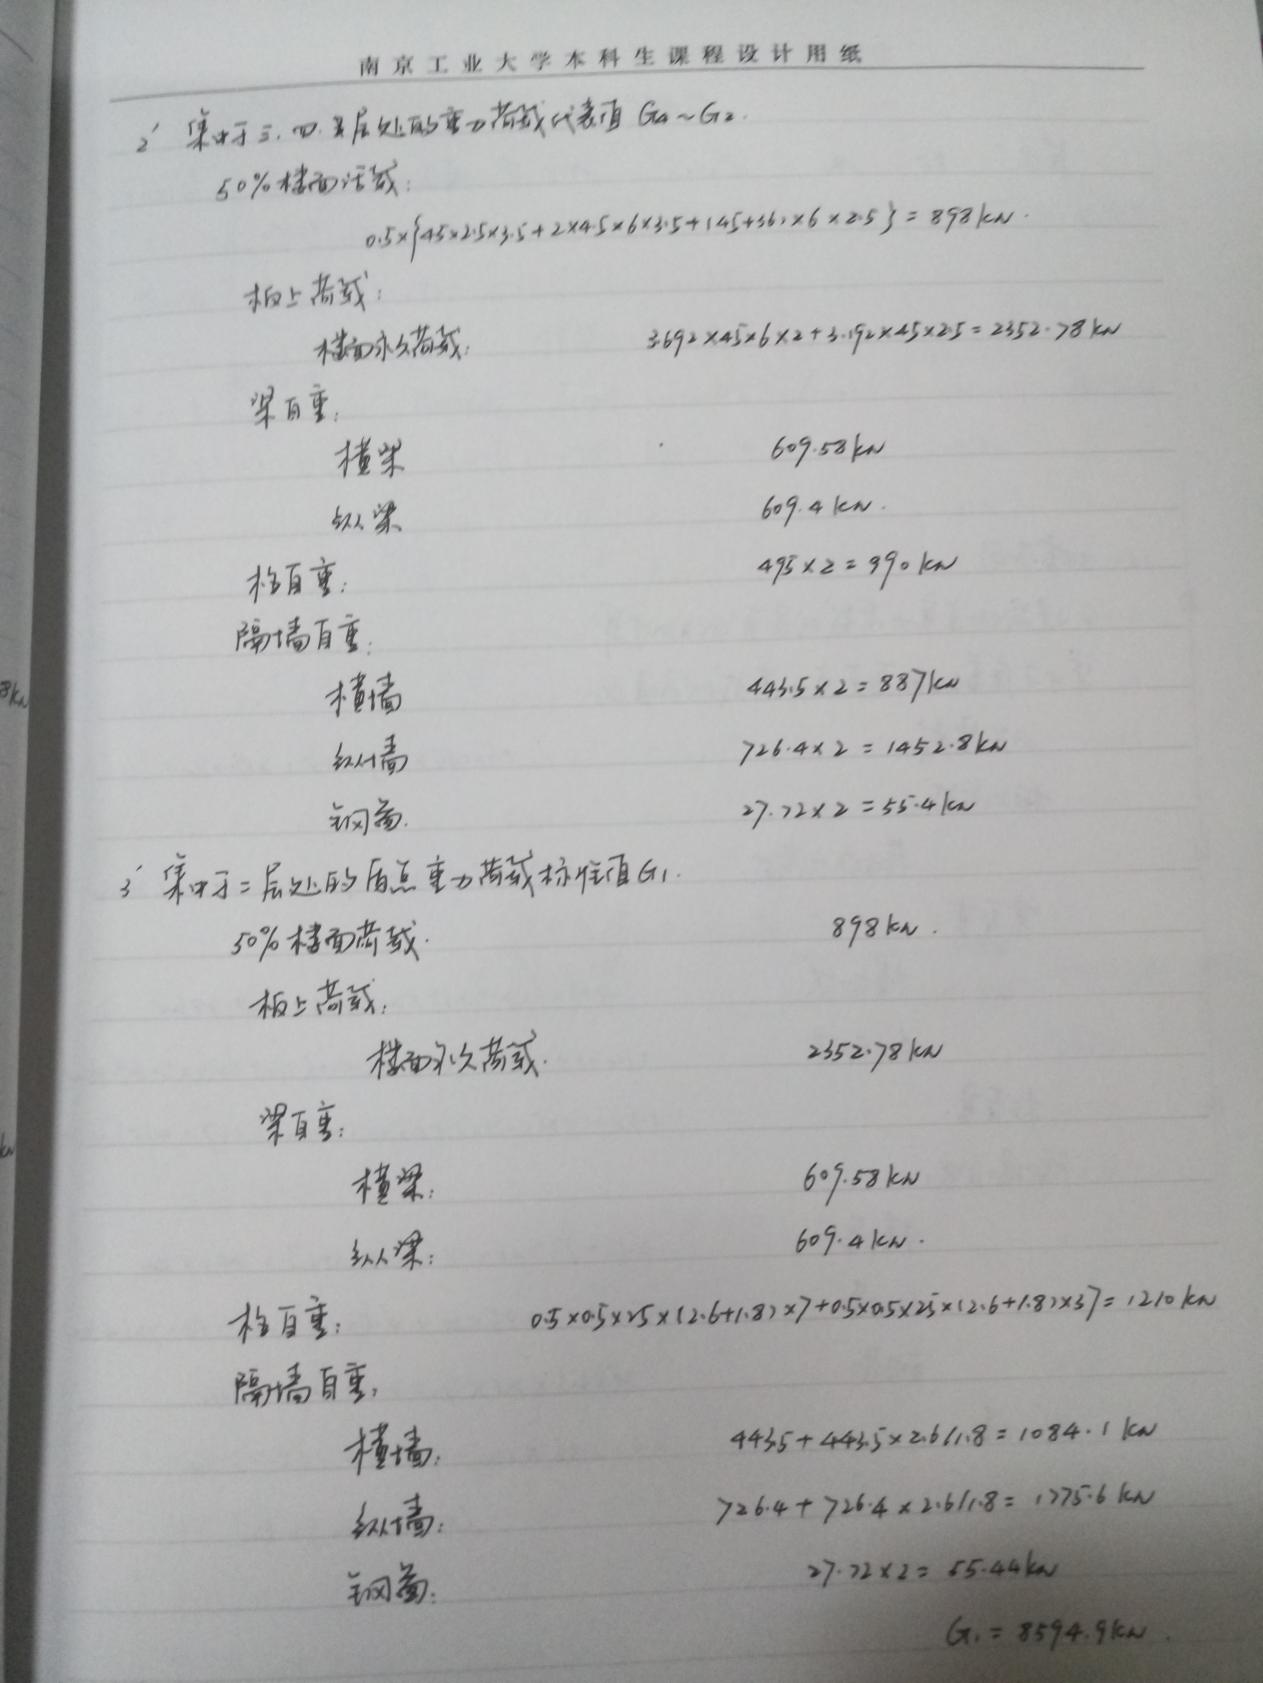 南京工业大学本科生课程设计用纸
2' 集中于三、四、五层处的重力荷载代表值 G4~G2.
50%楼面活载:
0.5×{45×2.5×3.5+2×4.5×6×3.5+(45+36)×6×2.5}=898kN.
板上荷载:
楼面永久荷载: 3.692×45×6×2+3.192×45×2.5=2352.78kN
梁自重:
横梁 609.58kN
纵梁 609.4kN.
柱自重: 495×2=990kN
隔墙自重:
横墙 443.5×2=887kN
纵墙 726.4×2=1452.8kN
钢窗. 27.72×2=55.4kN
3' 集中于二层处的质点重力荷载标准值G1.
50%楼面荷载. 898kN.
板上荷载:
楼面永久荷载. 2352.78kN
梁自重:
横梁: 609.58kN
纵梁: 609.4kN.
柱自重: 0.5×0.5×25×(2.6+1.8)×7+0.5×0.5×25×(2.6+1.8)×37=1210kN
隔墙自重:
横墙: 443.5+443.5×2.6/1.8=1084.1kN
纵墙: 726.4+726.4×2.6/1.8=1775.6kN
钢窗: 27.72×2=55.44kN
G1=8594.9kN.
8kN
kN